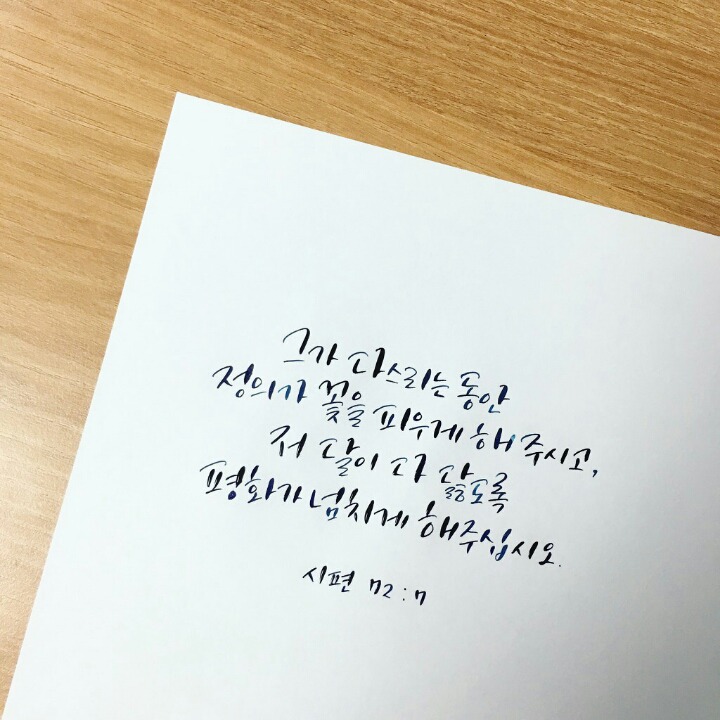 그가 다스리는 동안
정의가 꽃을 피우게 해 주시고,
저 달이 다 닳도록
평화가 넘치게 해주십시오.
시편 72:7